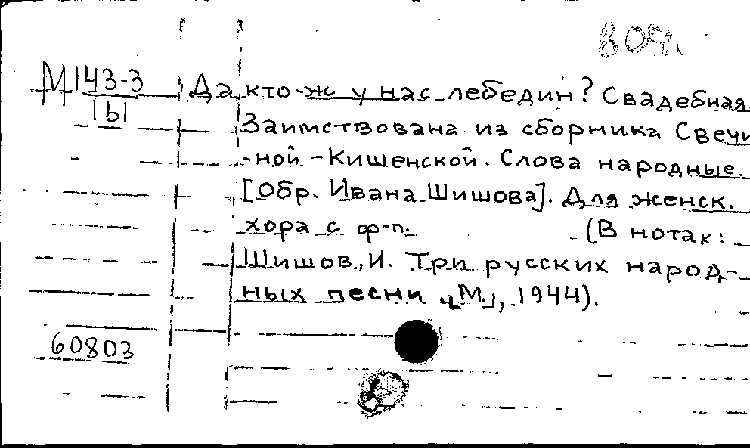 М 143-3
Да кто-ж у нас лебедин? Свадебная.
|ы|
Заимствована из сборника Свечи
-ной-Кишенской. Слова народные.
[Обр. Ивана Шишова]. Для женск.
хора с ф-п. (В нотах:
Шишов, И. Три русских народ-
ных песни [М.], 1944).
60803